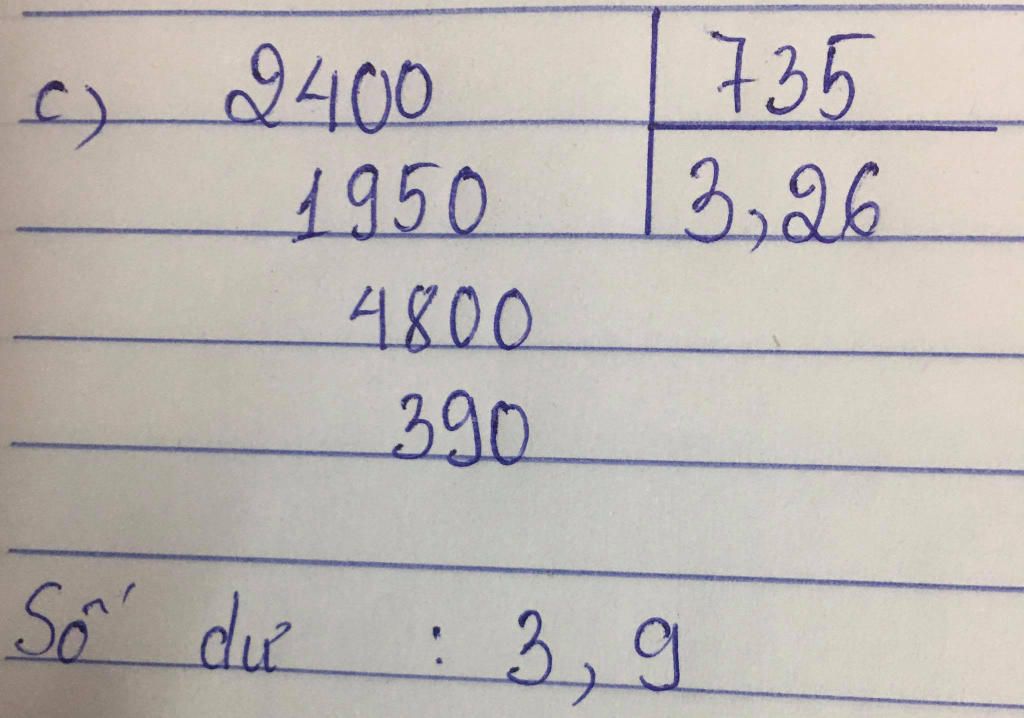 c) 2400 735
1950 3,26
4800
390
Số dư : 3,9